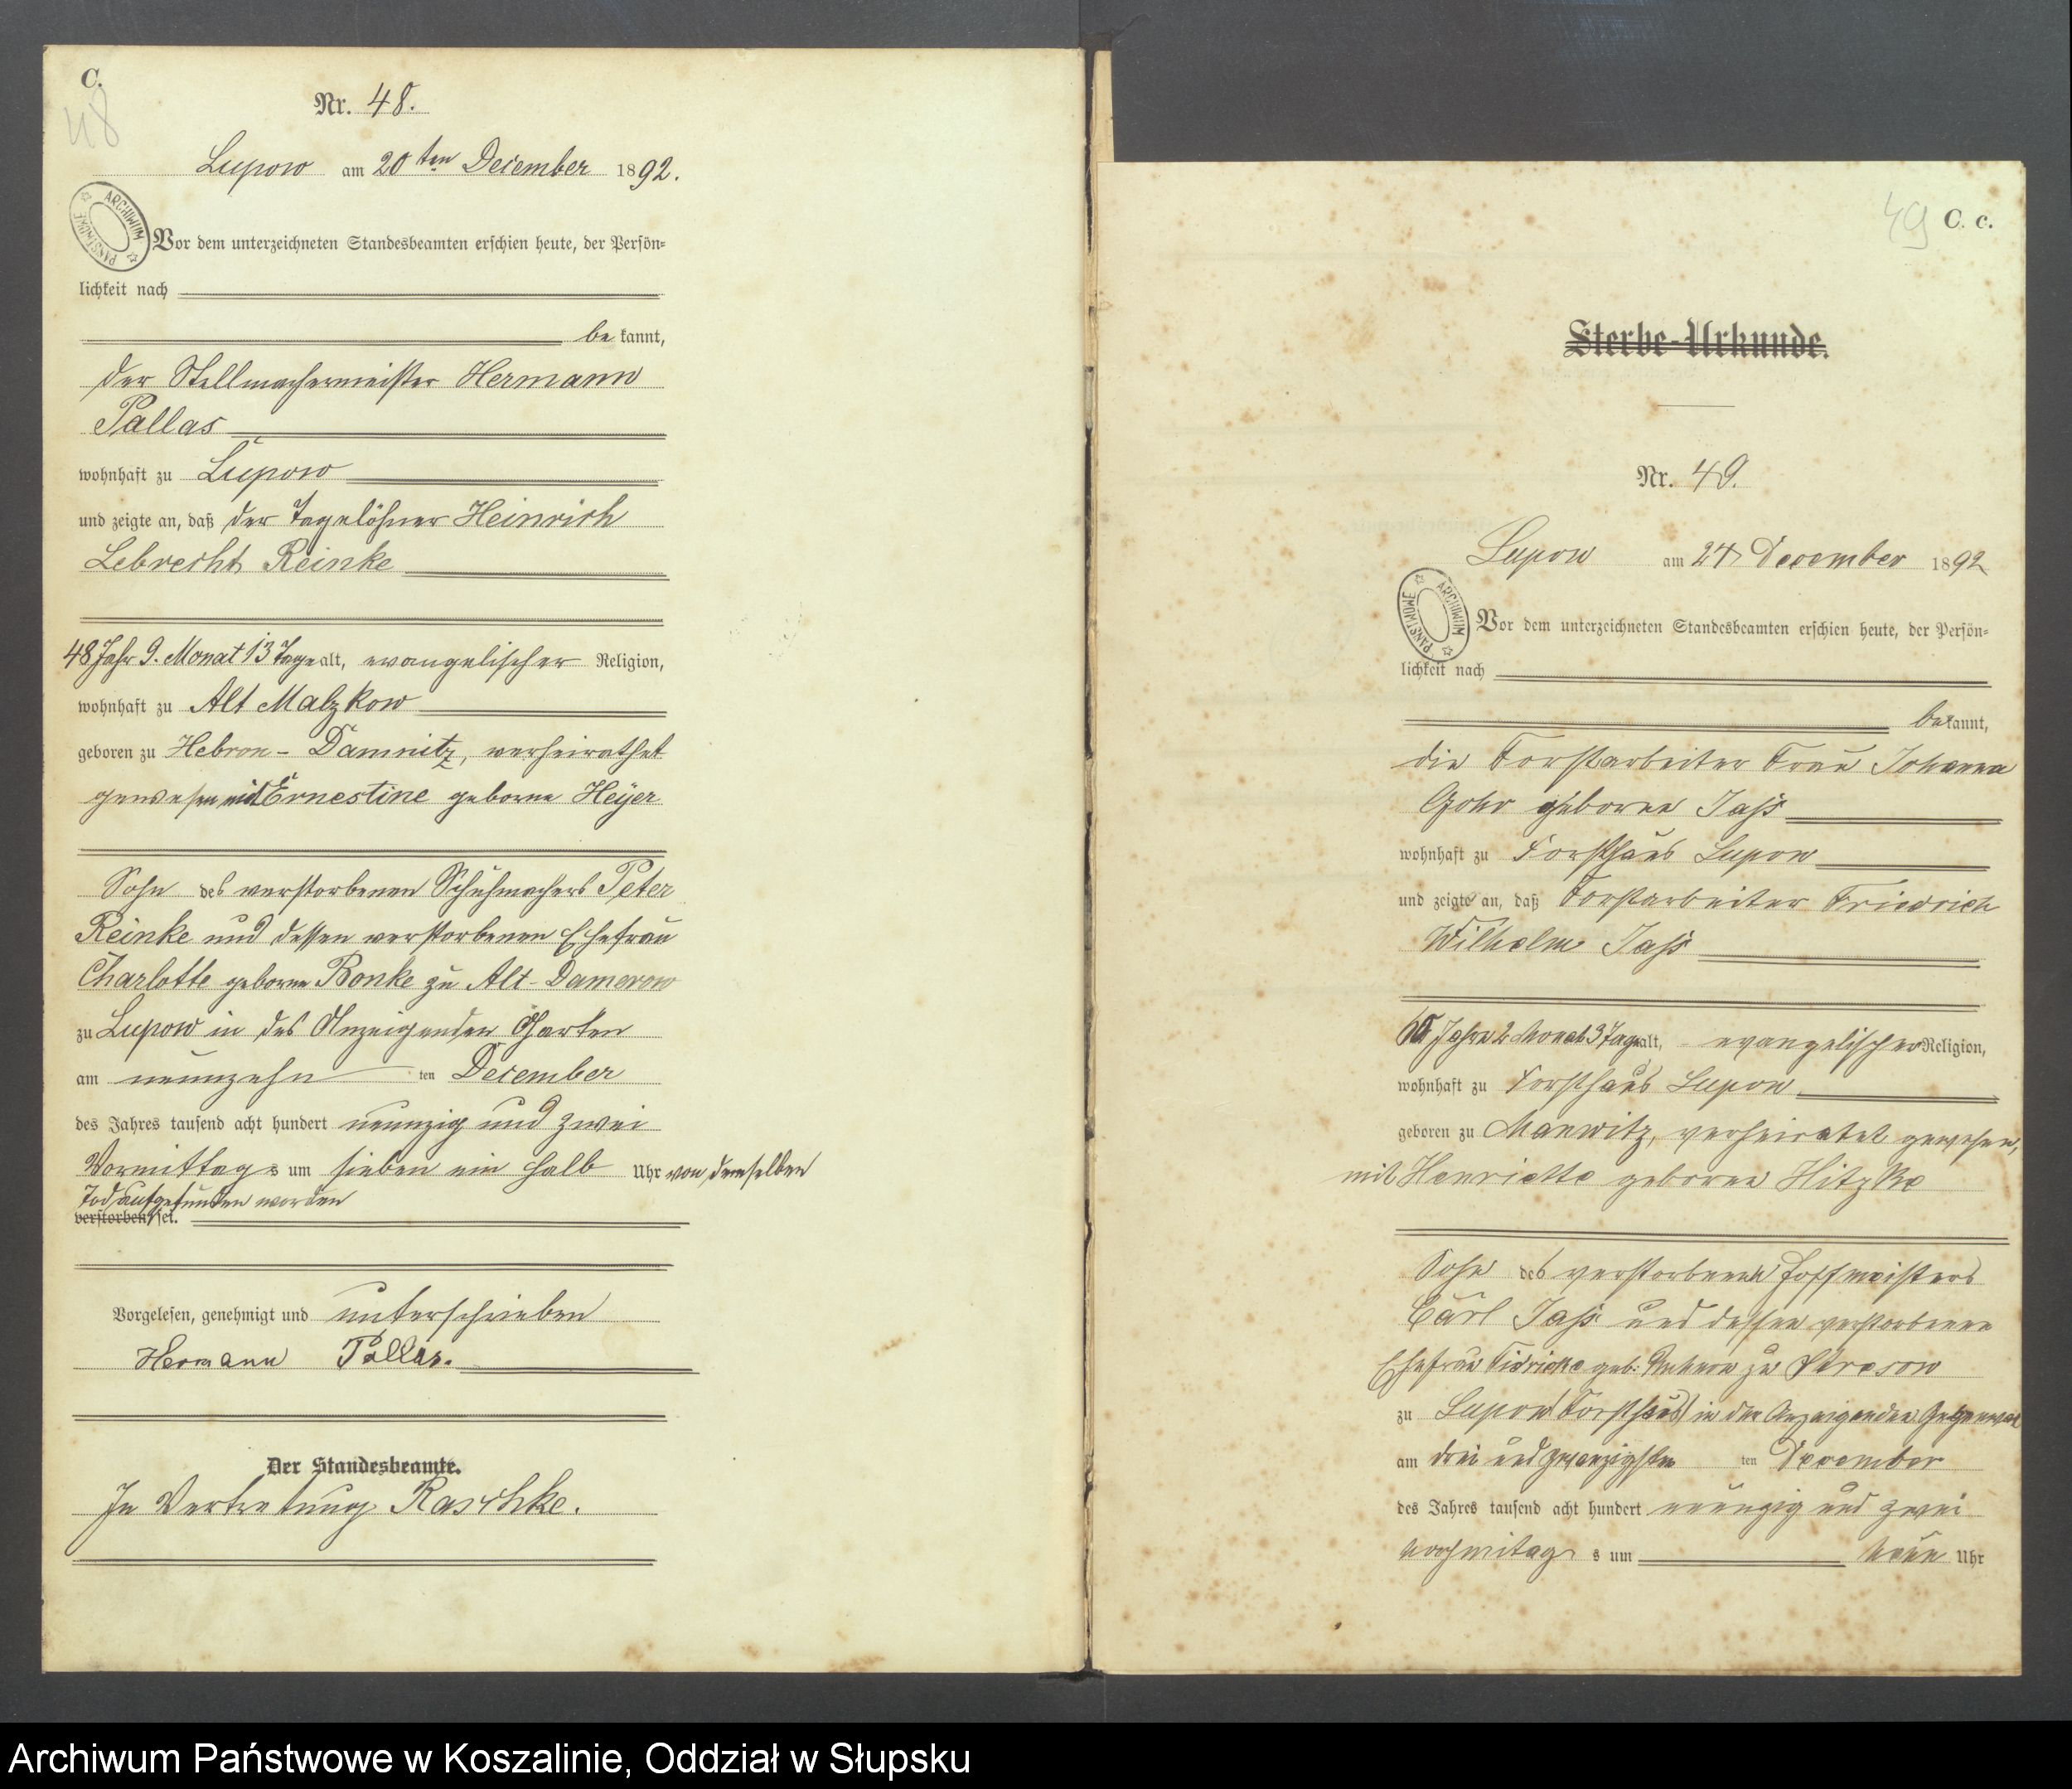 C.
48
Nr. 48.
Lupow am 20ten December 1892.
ARCHIWUM PAŃSTWOWE
Vor dem unterzeichneten Standesbeamten erschien heute, der Persön-
lichkeit nach
be kannt,
der Stellmachermeister Hermann
Pallas
wohnhaft zu Lupow
und zeigte an, daß der Tagelöhner Heinrich
Lebrecht Reinke
48 Jahr 9. Monat 13 Tage alt, evangelischer Religion,
wohnhaft zu Alt Malzkow
geboren zu Hebron-Damnitz, verheirathet
gewesen mit Ernestine geborne Heyer
Sohn des verstorbenen Schuhmachers Peter
Reinke und dessen verstorbenen Ehefrau
Charlotte geborne Bonke zu Alt-Damerow
zu Lupow in des Anzeigenden Garten
am neunzehn ten December
des Jahres tausend acht hundert neunzig und zwei
Vormittags um sieben ein halb Uhr von demselben
Tod aufgefunden worden
verstorben sei.
Vorgelesen, genehmigt und unterschrieben
Hermann Pallas.
Der Standesbeamte.
In Vertretung Raschke.
49 C. c.
Sterbe-Urkunde.
Nr. 49.
Lupow am 24 December 1892
ARCHIWUM PAŃSTWOWE
Vor dem unterzeichneten Standesbeamten erschien heute, der Persön-
lichkeit nach
bekannt,
die Forstarbeiter Frau Johanna
Gohr geborne Jaß
wohnhaft zu Forsthaus Lupow
und zeigte an, daß Forstarbeiter Friedrich
Wilhelm Jaß
Jahre 2 Monat 3 Tage alt, evangelischer Religion,
wohnhaft zu Forsthaus Lupow
geboren zu Manwitz, verheiratet gewesen,
mit Henriette geborne Hitzke
Sohn des verstorbenen Hoffmeisters
Carl Jaß und dessen verstorbenen
Ehefrau geb: zu Stresow
zu Lupow Forsthaus in der Anzeigenden Gegenwart
am drei und zwanzigsten ten December
des Jahres tausend acht hundert neunzig und zwei
Nachmitags um neun Uhr
Archiwum Państwowe w Koszalinie, Oddział w Słupsku